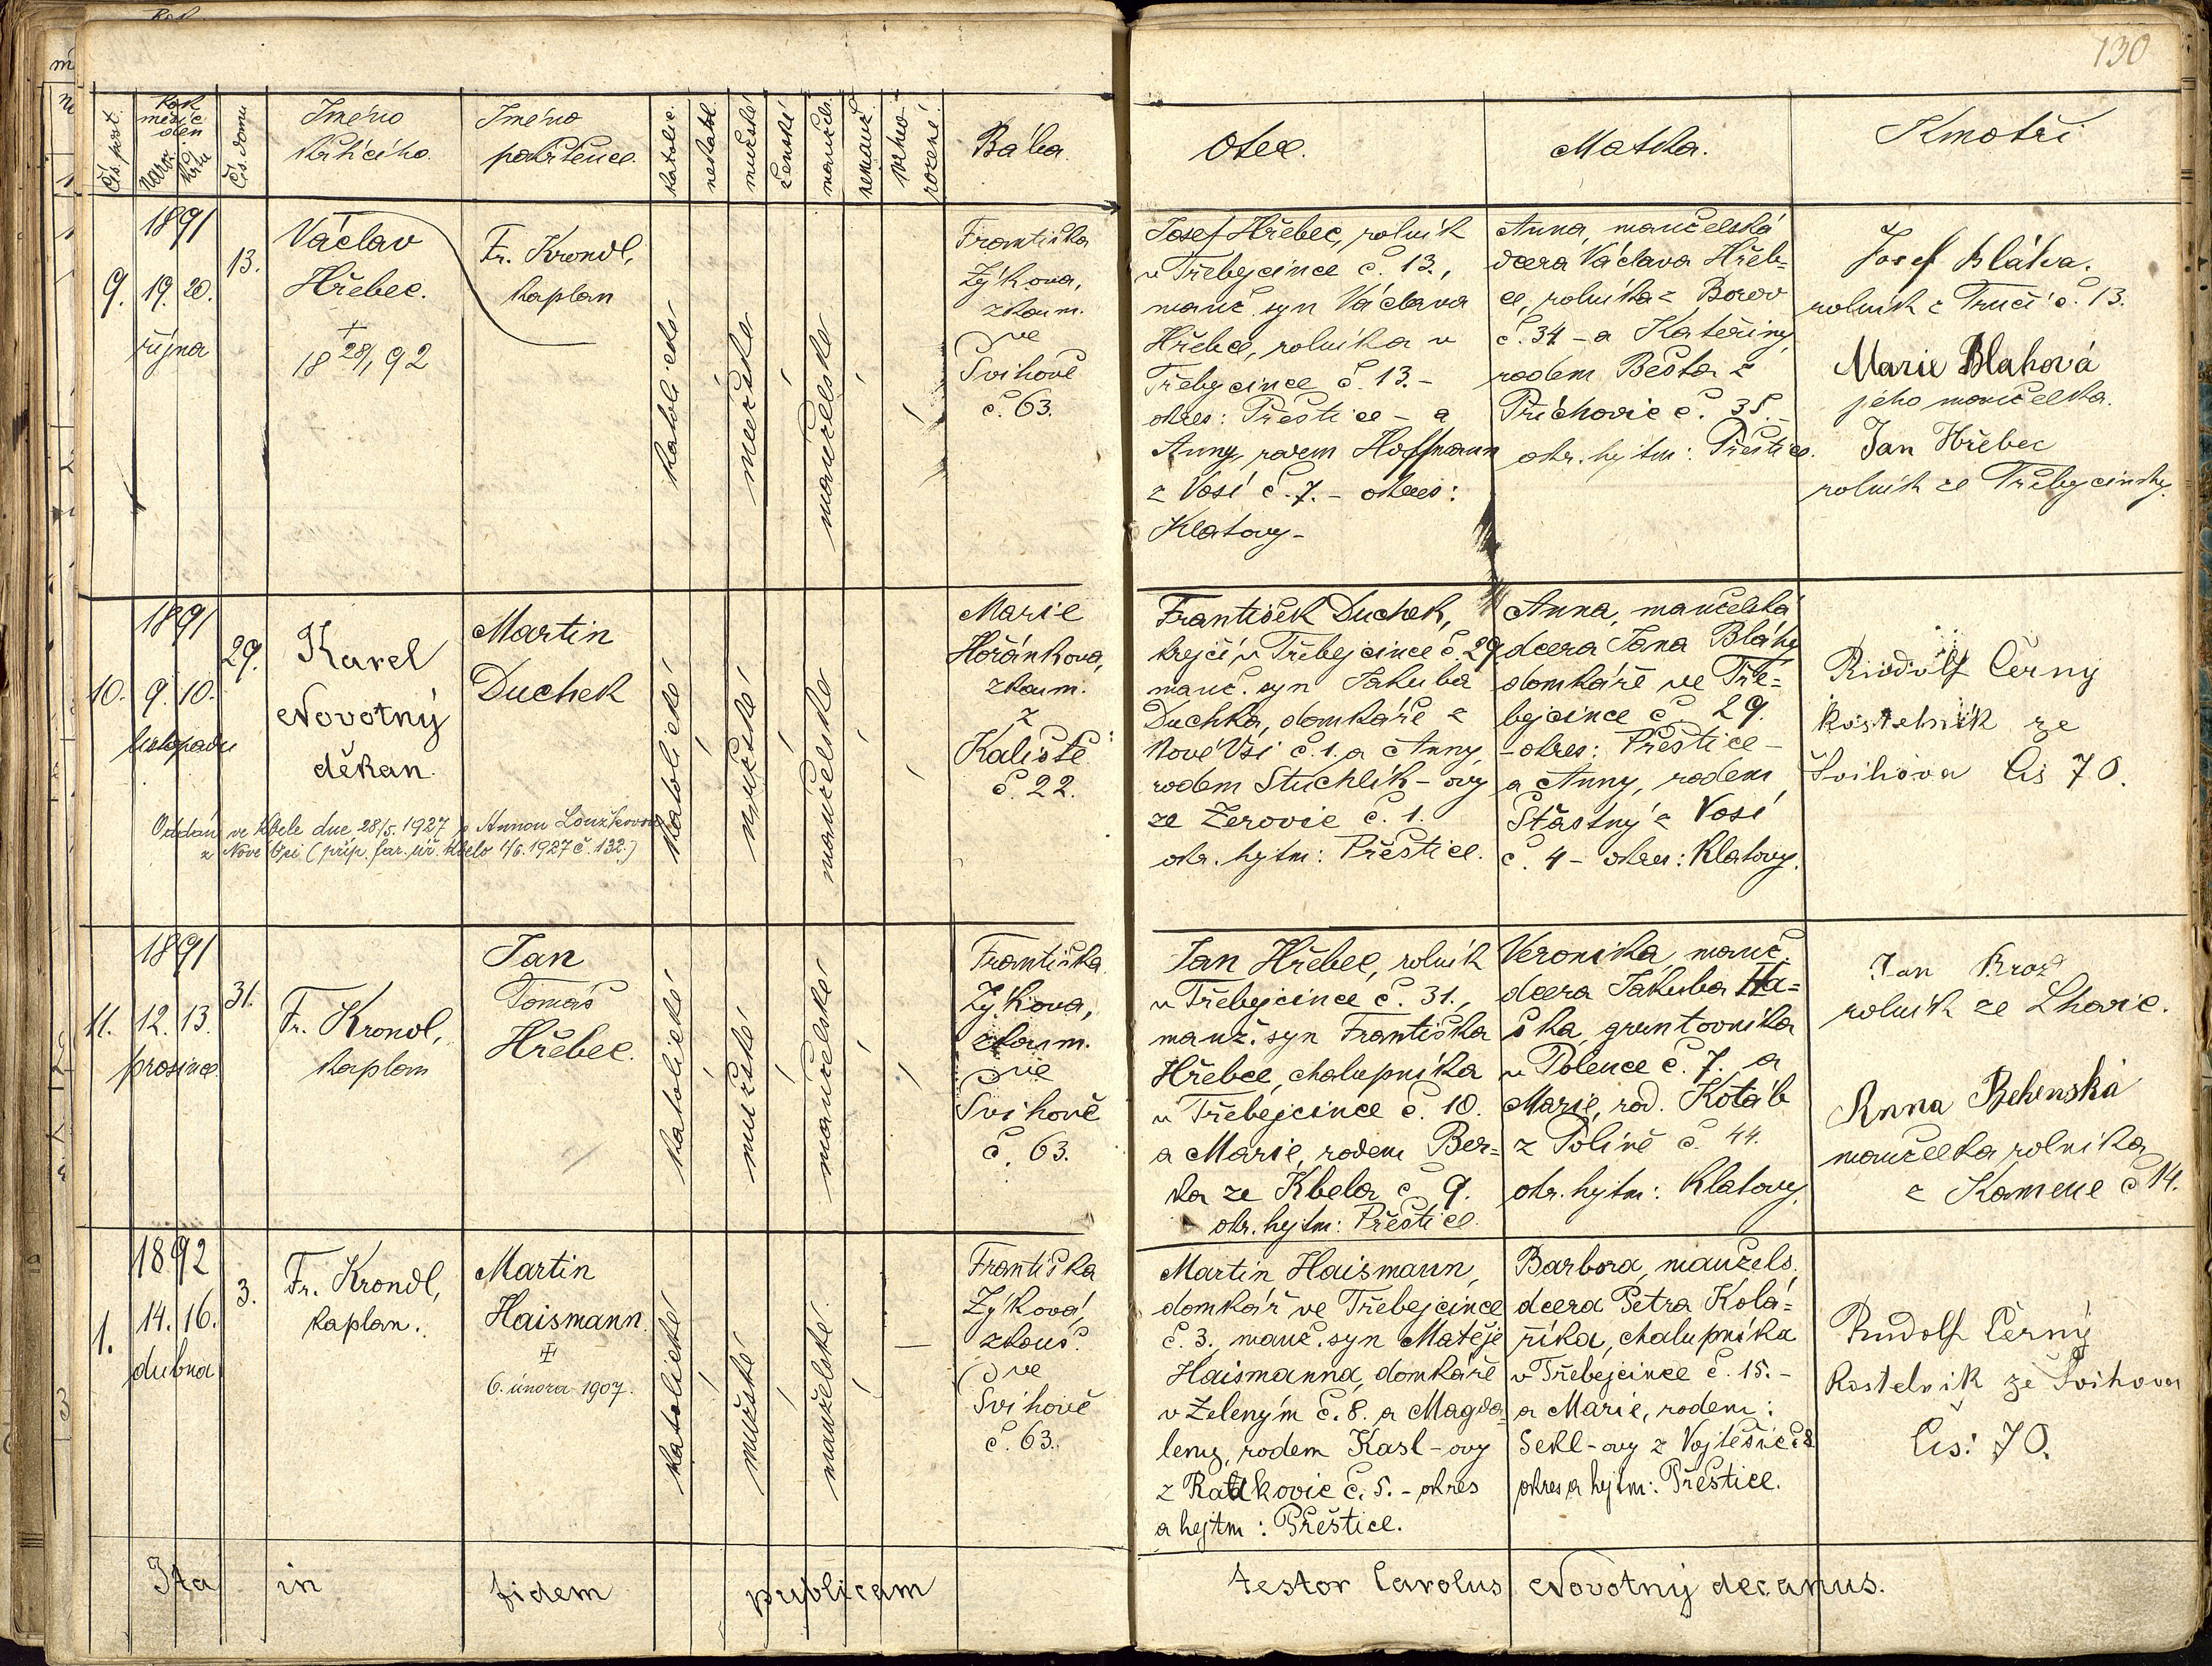 130
Čís. post.
Rok
měsíc
den
naroz.
křtu
Čís. domu
Jméno
křtícího.
Jméno
pokřtěnce.
katolic.
nekatol.
mužské
ženské
manžels.
nemanž.
mrtvo
rozené.
Bába.
Otec.
Matka.
Kmotři
1891
9. 19. 20.
října
13.
Václav
Hřebec.
+
18 28/1 92
Fr. Krondl,
kaplan
katolické
mužské
manželské
Františka
Zýkova,
zkoum.
ve
Švihově
č. 63.
Josef Hřebec, rolník
v Třebejcince č. 13.,
manž. syn Václava
Hřebce, rolníka v
Třebejcince č. 13. -
okres: Přeštice - a
Anny, rodem Hoffmann
z Vosí č. 7. - okres:
Klatovy -
Anna, manželská
dcera Václava Hřeb=
ce, rolníka z Borov
č. 34 - a Kateřiny
rodem Bešta z
Příchovic č. 35. -
okr. hejtm: Přeštice.
Josef Bláha.
rolník z č. 13.
Marie Blahová
jeho manželka.
Jan Hřebec
rolník ze Třebejcinky.
1891
10. 9. 10.
listopadu
29.
Karel
Novotný
děkan.
Martin
Duchek
Oddán ve Kbele dne 28/5. 1927 s Annou Loužkovou
z Nové Vsi (příp. far. úř. Kbelo 1/6. 1927 č. 132.)
katolické
mužské
manželské
Marie
Hořánková,
zkoum.
z
Kaliště
č. 22.
František Duchek,
krejčí v Třebejcince č. 29
manž. syn Jakuba
Duchka, domkáře z
Nové Vsi č. 1. a Anny,
rodem Stuchlík-ovy
ze Žerovic č. 1.
okr. hejtm: Přeštice.
Anna, manželská
dcera Jana Bláhy
domkáře ve Tře=
bejcince č. 29.
- okres: Přeštice -
a Anny, rodem
Šťastný z Vosí
č. 4 - okres: Klatovy.
Rudolf Černý
kostelník ze
Švihova čis 70.
1891
11. 12. 13.
prosince
31.
Fr. Krondl,
kaplan
Jan
Tomáš
Hřebec.
katolické
mužské
manželské
Františka
Zýkova,
zkoum.
ve
Švihově
č. 63.
Jan Hřebec, rolník
v Třebejcince č. 31.,
manž. syn Františka
Hřebce, chalupníka
v Třebejcince č. 10.
a Marie, rodem Ber=
ka ze Kbela č 9.
okr. hejtm: Přeštice.
Veronika, manž.
dcera Jakuba Ha=
ška, gruntovníka
v Polence č. 7. a
Marie, rod. Kotáb
z Polině č. 44.
okr. hejtm: Klatovy.
Jan Brož
rolník ze Lhovic.
Anna Behenská
manželka rolníka
z Kamene č 14.
1892
1. 14. 16.
dubna
3.
Fr. Krondl,
kaplan.
Martin
Haismann.
+
6. února 1907.
katolické
mužské
manželské
Františka
Zýková,
zkouš.
ve
Švihově
č. 63.
Martin Haismann,
domkář ve Třebejcince
č. 3., manž. syn Matěje
Haismanna, domkáře
v Zeleným č. 8. a Magda=
leny, rodem Kasl-ovy
z Ratkovic č. 5. - okres
a hejtm: Přeštice.
Barbora, manžels.
dcera Petra Kolá=
říka, chalupníka
v Třebejcince č. 15. -
a Marie, rodem:
Sekl-ovy z Vojtěšic č 8
okres a hejtm: Přeštice.
Rudolf Černý
Kostelník ze Švihova
čis: 70.
Ita in fidem publicam testor Carolus Novotný decanus.